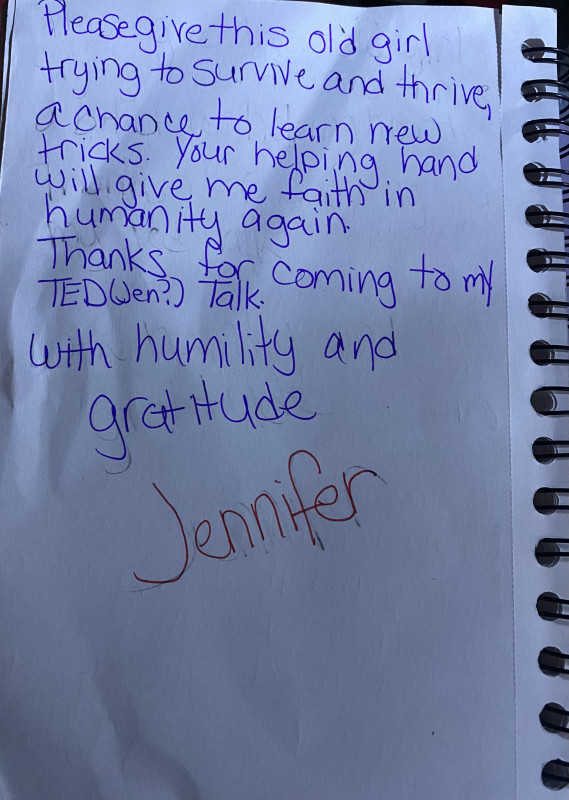 Please give this old girl
trying to survive and thrive,
a chance to learn new
tricks. Your helping hand
will give me faith in
humanity again.
Thanks for coming to my
TED(Jen?) Talk.
with humility and
gratitude
Jennifer